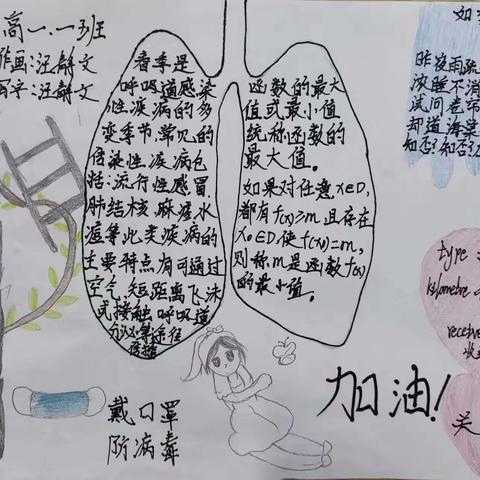 高一.一班
作画:汪龄文
写字:汪龄文
春季是
呼吸道感染
性疾病的多
变季节,常见的
传染性疾病包
括:流行性感冒
肺结核.麻疹.水
痘等此类疾病的
主要特点有可通过
空气.短距离飞沫
或接触呼吸道
分泌等途径
传播
函数的最大
值或最小值
统称函数的
最大值。
如果对任意x∈D,
都有f(x)≥m,且存在
X₀∈D,使f(x₀)=m,
则称m是函数f(x)
的最小值。
昨夜雨疏
浓睡不消
试问卷帘
却道海棠
知否?知否?
type
kilometre
receive
加油!
关
戴口罩
防病毒